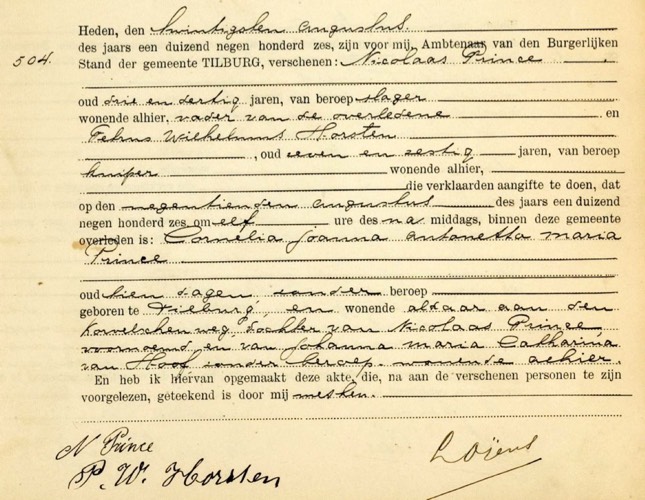 Heden, den twintigsten augustus
des jaars een duizend negen honderd zes, zijn voor mij, Ambtenaar van den Burgerlijken
504. Stand der gemeente TILBURG, verschenen: Nicolaas Prince,
oud drie en dertig jaren, van beroep slager
wonende alhier, vader van de overledene en
Petrus Wilhelmus Horsten
, oud zeven en zestig jaren, van beroep
kuiper wonende alhier,
die verklaarden aangifte te doen, dat
op den negentienden augustus des jaars een duizend
negen honderd zes, om elf ure des na middags, binnen deze gemeente
overleden is: Cornelia Joanna Antonetta Maria
Prince
oud tien dagen, zonder beroep
geboren te Tilburg, en wonende aldaar aan den
Korvelschenweg, dochter van Nicolaas Prince,
voornoemd, en van Johanna Maria Catharina
van Hoof zonder beroep, wonende alhier.
En heb ik hiervan opgemaakt deze akte, die, na aan de verschenen personen te zijn
voorgelezen, geteekend is door mij met hen.
N Prince
P. W. Horsten